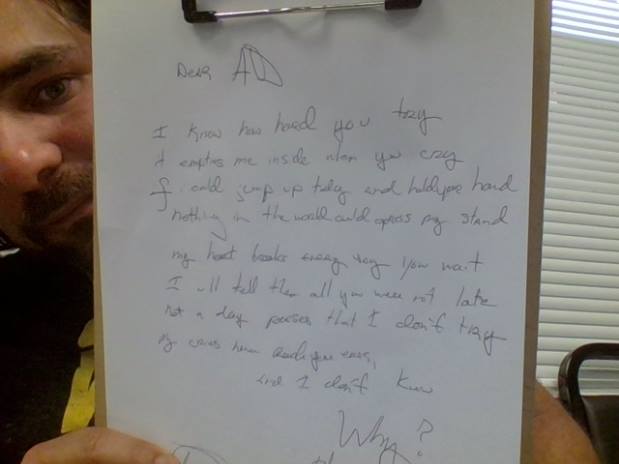 Dear AD
I know how hard you tray
it empties me inside when you cray
if i could jump up today and hold your hand
nothing in the world could opress my stand
my heart breaks every day you wait
I will tell them all you were not late
not a day passes that I don't tray
my cries never reach your ears,
and I don't know
Why?